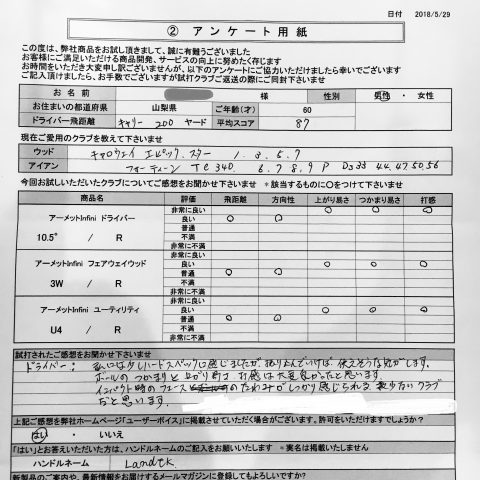 日付　2018/5/29
② アンケート用紙
この度は、弊社商品をお試し頂きまして、誠に有難うございました
お客様にご満足いただける商品開発、サービスの向上に努めたく存じます
お時間をいただき大変申し訳ございませんが、以下のアンケートにご協力いただけましたら幸いでございます
ご記入頂けましたら、お手数でございますが試打クラブご返送の際にご同封下さいませ
お名前 様 性別 男性 ・ 女性
お住まいの都道府県 山梨県 ご年齢(才) 60
ドライバー飛距離 キャリー 200 ヤード 平均スコア 87
現在ご愛用のクラブを教えて下さいませ
ウッド キャロウェイ エピック.スター 1.3.5.7
アイアン フォーティーン TC340 6.7.8.9 P DJ33 44.47.50.56
今回お試しいただいたクラブについてご感想をお聞かせ下さいませ ＊該当するものに〇をつけて下さいませ
商品名 評価 飛距離 方向性 上がり易さ つかまり易さ 打感
アーメットInfini ドライバー
10.5° / R
非常に良い
良い
普通
不満
非常に不満
アーメットInfini フェアウェイウッド
3W / R
非常に良い
良い
普通
不満
非常に不満
アーメットInfini ユーティリティ
U4 / R
非常に良い
良い
普通
不満
非常に不満
試打されたご感想をお聞かせ下さいませ
ドライバー: 私には少しハードスペックに感じましたが、振り込んでいけば、使えそうな気がします。
ボールのつかまりと上がり易さ、打感は大変良かったと思います
インパクト時のフェースのたわみがしっかり感じられる
だと思います。
上記ご感想を弊社ホームページ「ユーザーボイス」に掲載させていただく場合がございます。許可をいただけますでしょうか？
はい ・ いいえ
「はい」とお答えいただいた方は、ハンドルネームのご記入をお願いいたします ＊実名は掲載いたしません
ハンドルネーム Landtk
新製品のご案内や、最新情報をお届けするメールマガジンに登録してもよろしいですか？